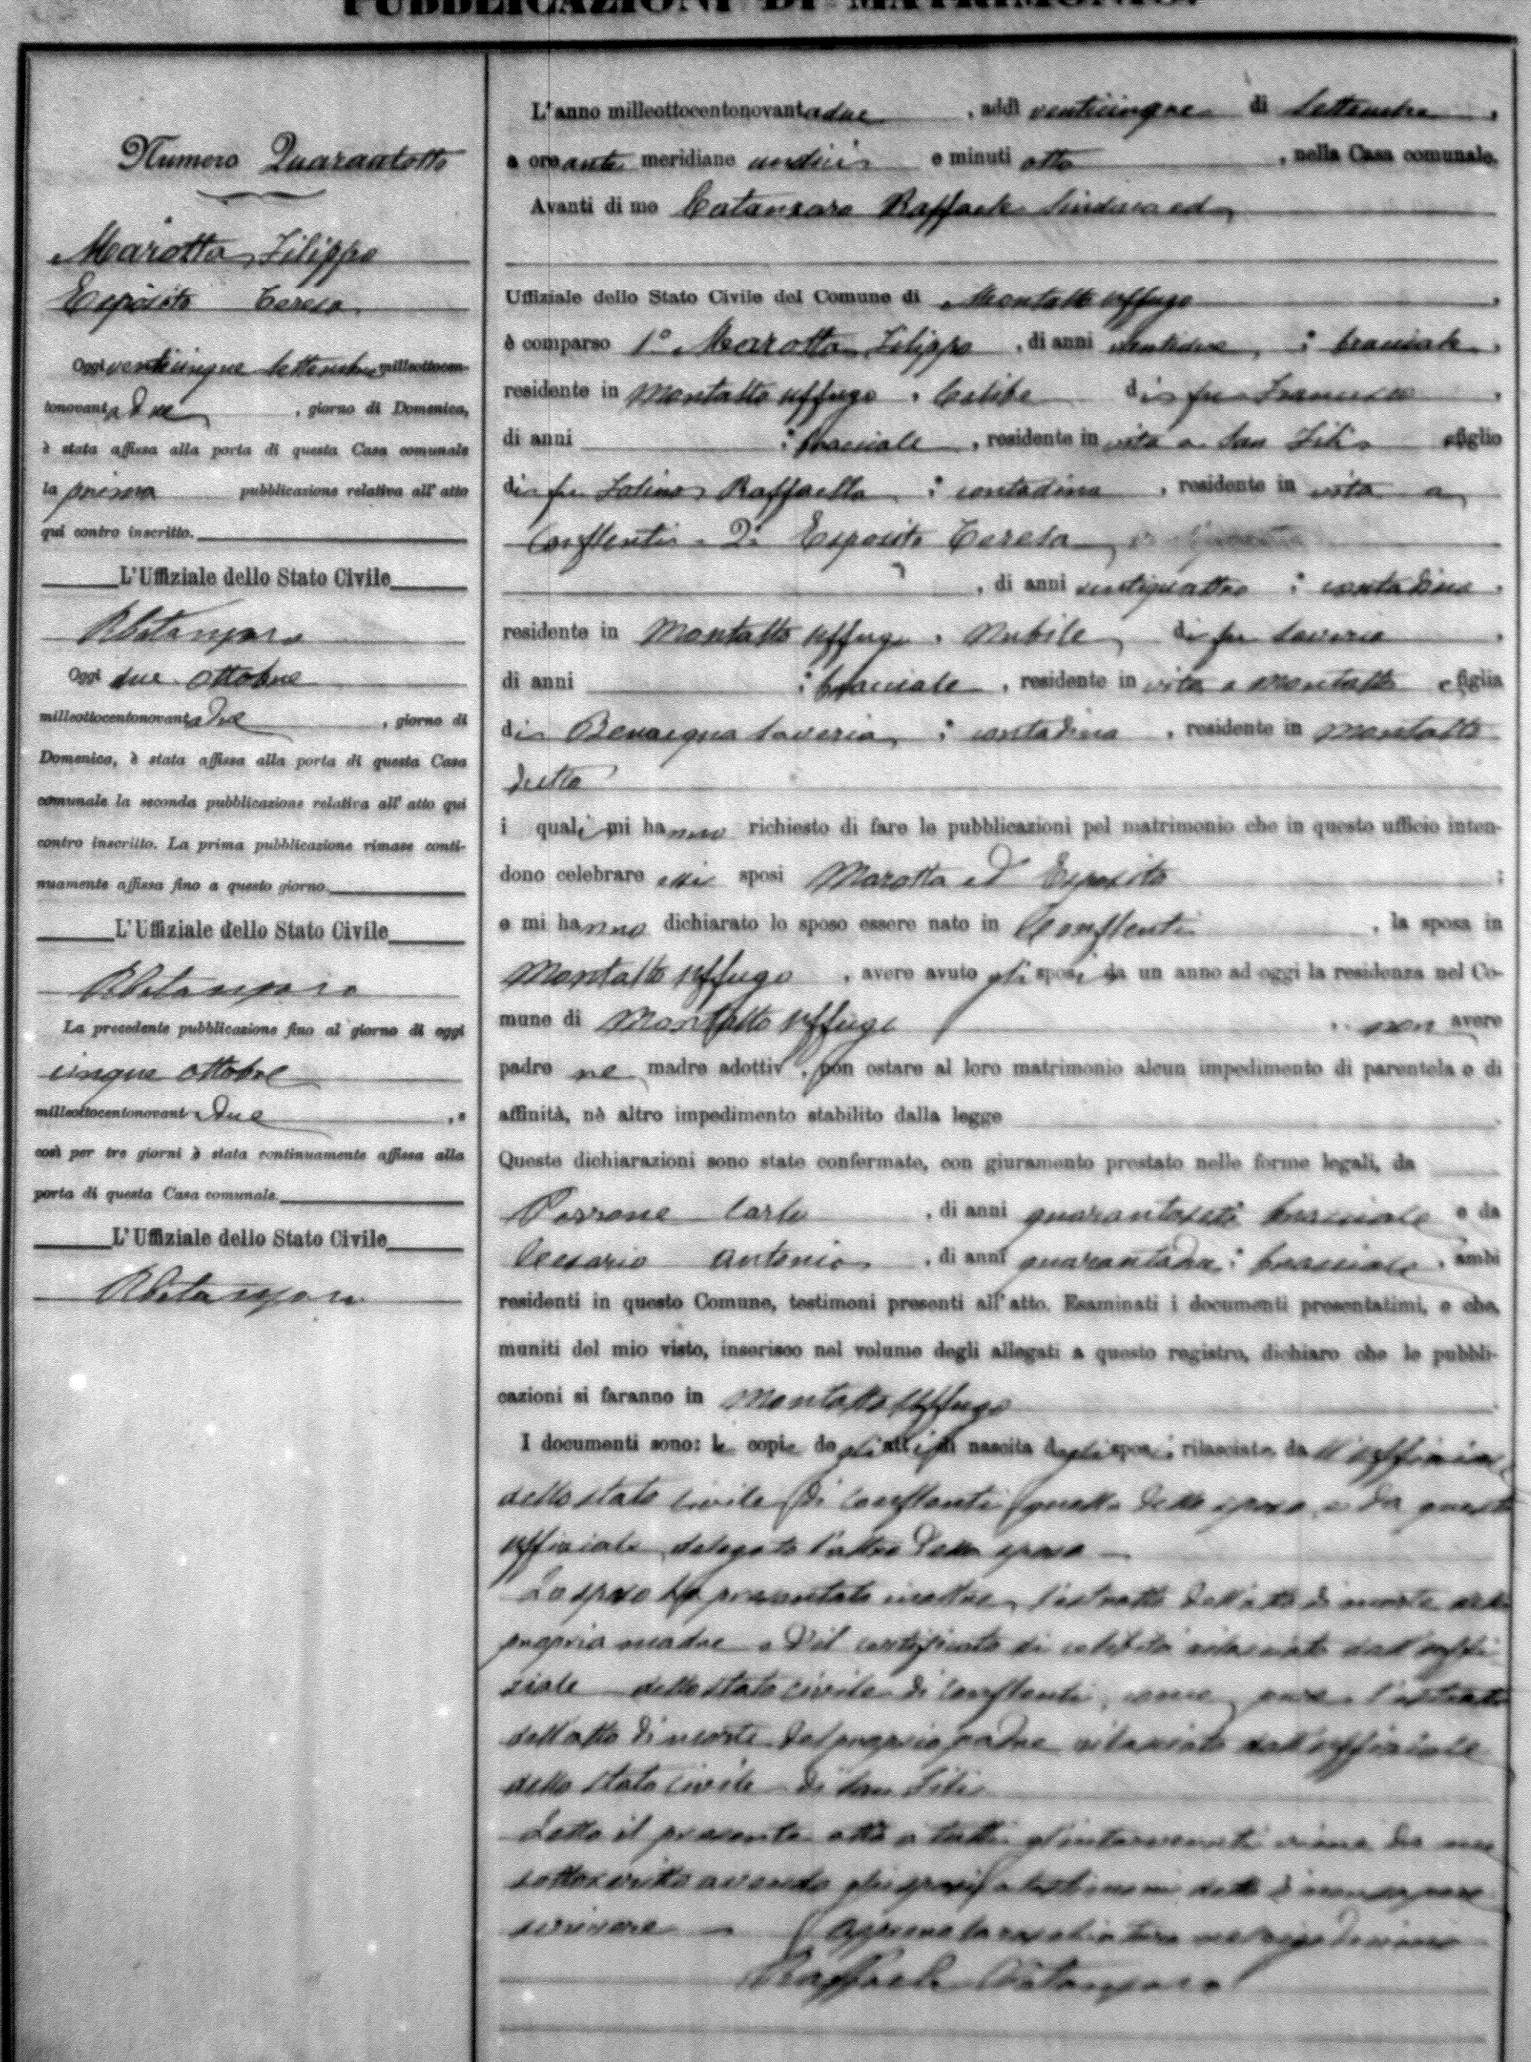 PUBBLICAZIONI DI MATRIMONIO.
Numero Quarantotto
Marotta Filippo
Esposito Teresa
Oggi venticinque Settembre milleottocen-
tonovantadue, giorno di Domenica,
è stata affissa alla porta di questa Casa comunale
la prima pubblicazione relativa all' atto
qui contro inscritto.
L'Uffiziale dello Stato Civile
RCatanzaro
Oggi due Ottobre
milleottocentonovantadue, giorno di
Domenica, è stata affissa alla porta di questa Casa
comunale la seconda pubblicazione relativa all' atto qui
contro inscritto. La prima pubblicazione rimase conti-
nuamente affissa fino a questo giorno.
L'Uffiziale dello Stato Civile
RCatanzaro
La precedente pubblicazione fino al giorno di oggi
cinque Ottobre
milleottocentonovantadue, e
così per tre giorni è stata continuamente affissa alla
porta di questa Casa comunale.
L'Uffiziale dello Stato Civile
RCatanzaro
L'anno milleottocentonovantadue, addì venticinque di Settembre,
a ore anti meridiane undici e minuti otto, nella Casa comunale.
Avanti di me Catanzaro Raffaele Sindaco ed
Uffiziale dello Stato Civile del Comune di Montalto Uffugo,
è comparso 1° Marotta Filippo, di anni ventidue, bracciale,
residente in Montalto Uffugo, Celibe di fu Francesco,
di anni bracciale, residente in vita a San Fili figlio
di fu Raffaella, contadina, residente in vita a
Conflenti - 2° Esposito Teresa
, di anni ventiquattro, contadina,
residente in Montalto Uffugo, Nubile, di fu Saverio,
di anni bracciale, residente in vita a Montalto e figlia
di Bevacqua Saveria, contadina, residente in Montalto
detto
i quali mi hanno richiesto di fare le pubblicazioni pel matrimonio che in questo ufficio inten-
dono celebrare essi sposi Marotta ed Esposito;
e mi hanno dichiarato lo sposo essere nato in Conflenti, la sposa in
Montalto Uffugo, avere avuto gli sposi da un anno ad oggi la residenza nel Co-
mune di Montalto Uffugo, non avere
padre ne madre adottiv, non ostare al loro matrimonio alcun impedimento di parentela o di
affinità, nè altro impedimento stabilito dalla legge
Queste dichiarazioni sono state confermate, con giuramento prestato nelle forme legali, da
Perrone Carlo, di anni bracciale e da
Cesario Antonio, di anni quarantadue, bracciale, ambi
residenti in questo Comune, testimoni presenti all'atto. Esaminati i documenti presentatimi, e che,
muniti del mio visto, inserisco nel volume degli allegati a questo registro, dichiaro che le pubbli-
cazioni si faranno in Montalto Uffugo.
I documenti sono: le copie degli atti di nascita degli sposi rilasciate da ll'uffiziale
dello stato civile di Conflenti quella dello sposo e da questo
uffiziale delegato l'altra della sposa —
Lo sposo ha presentato inoltre l'estratto dell'atto di morte della
propria madre ed il certificato di celibità rilasciato dall'uffi-
ziale dello stato civile di Conflenti, come pure l'estratto
dell'atto di morte del proprio padre rilasciato dall'uffiziale
dello stato civile di San Fili
Letto il presente atto a tutti gl'intervenuti viene da me
sottoscritto avendo gli sposi e testimoni detto di non sapere
scrivere — Approvo la raschiatura nel rigo decimo
Raffaele Catanzaro